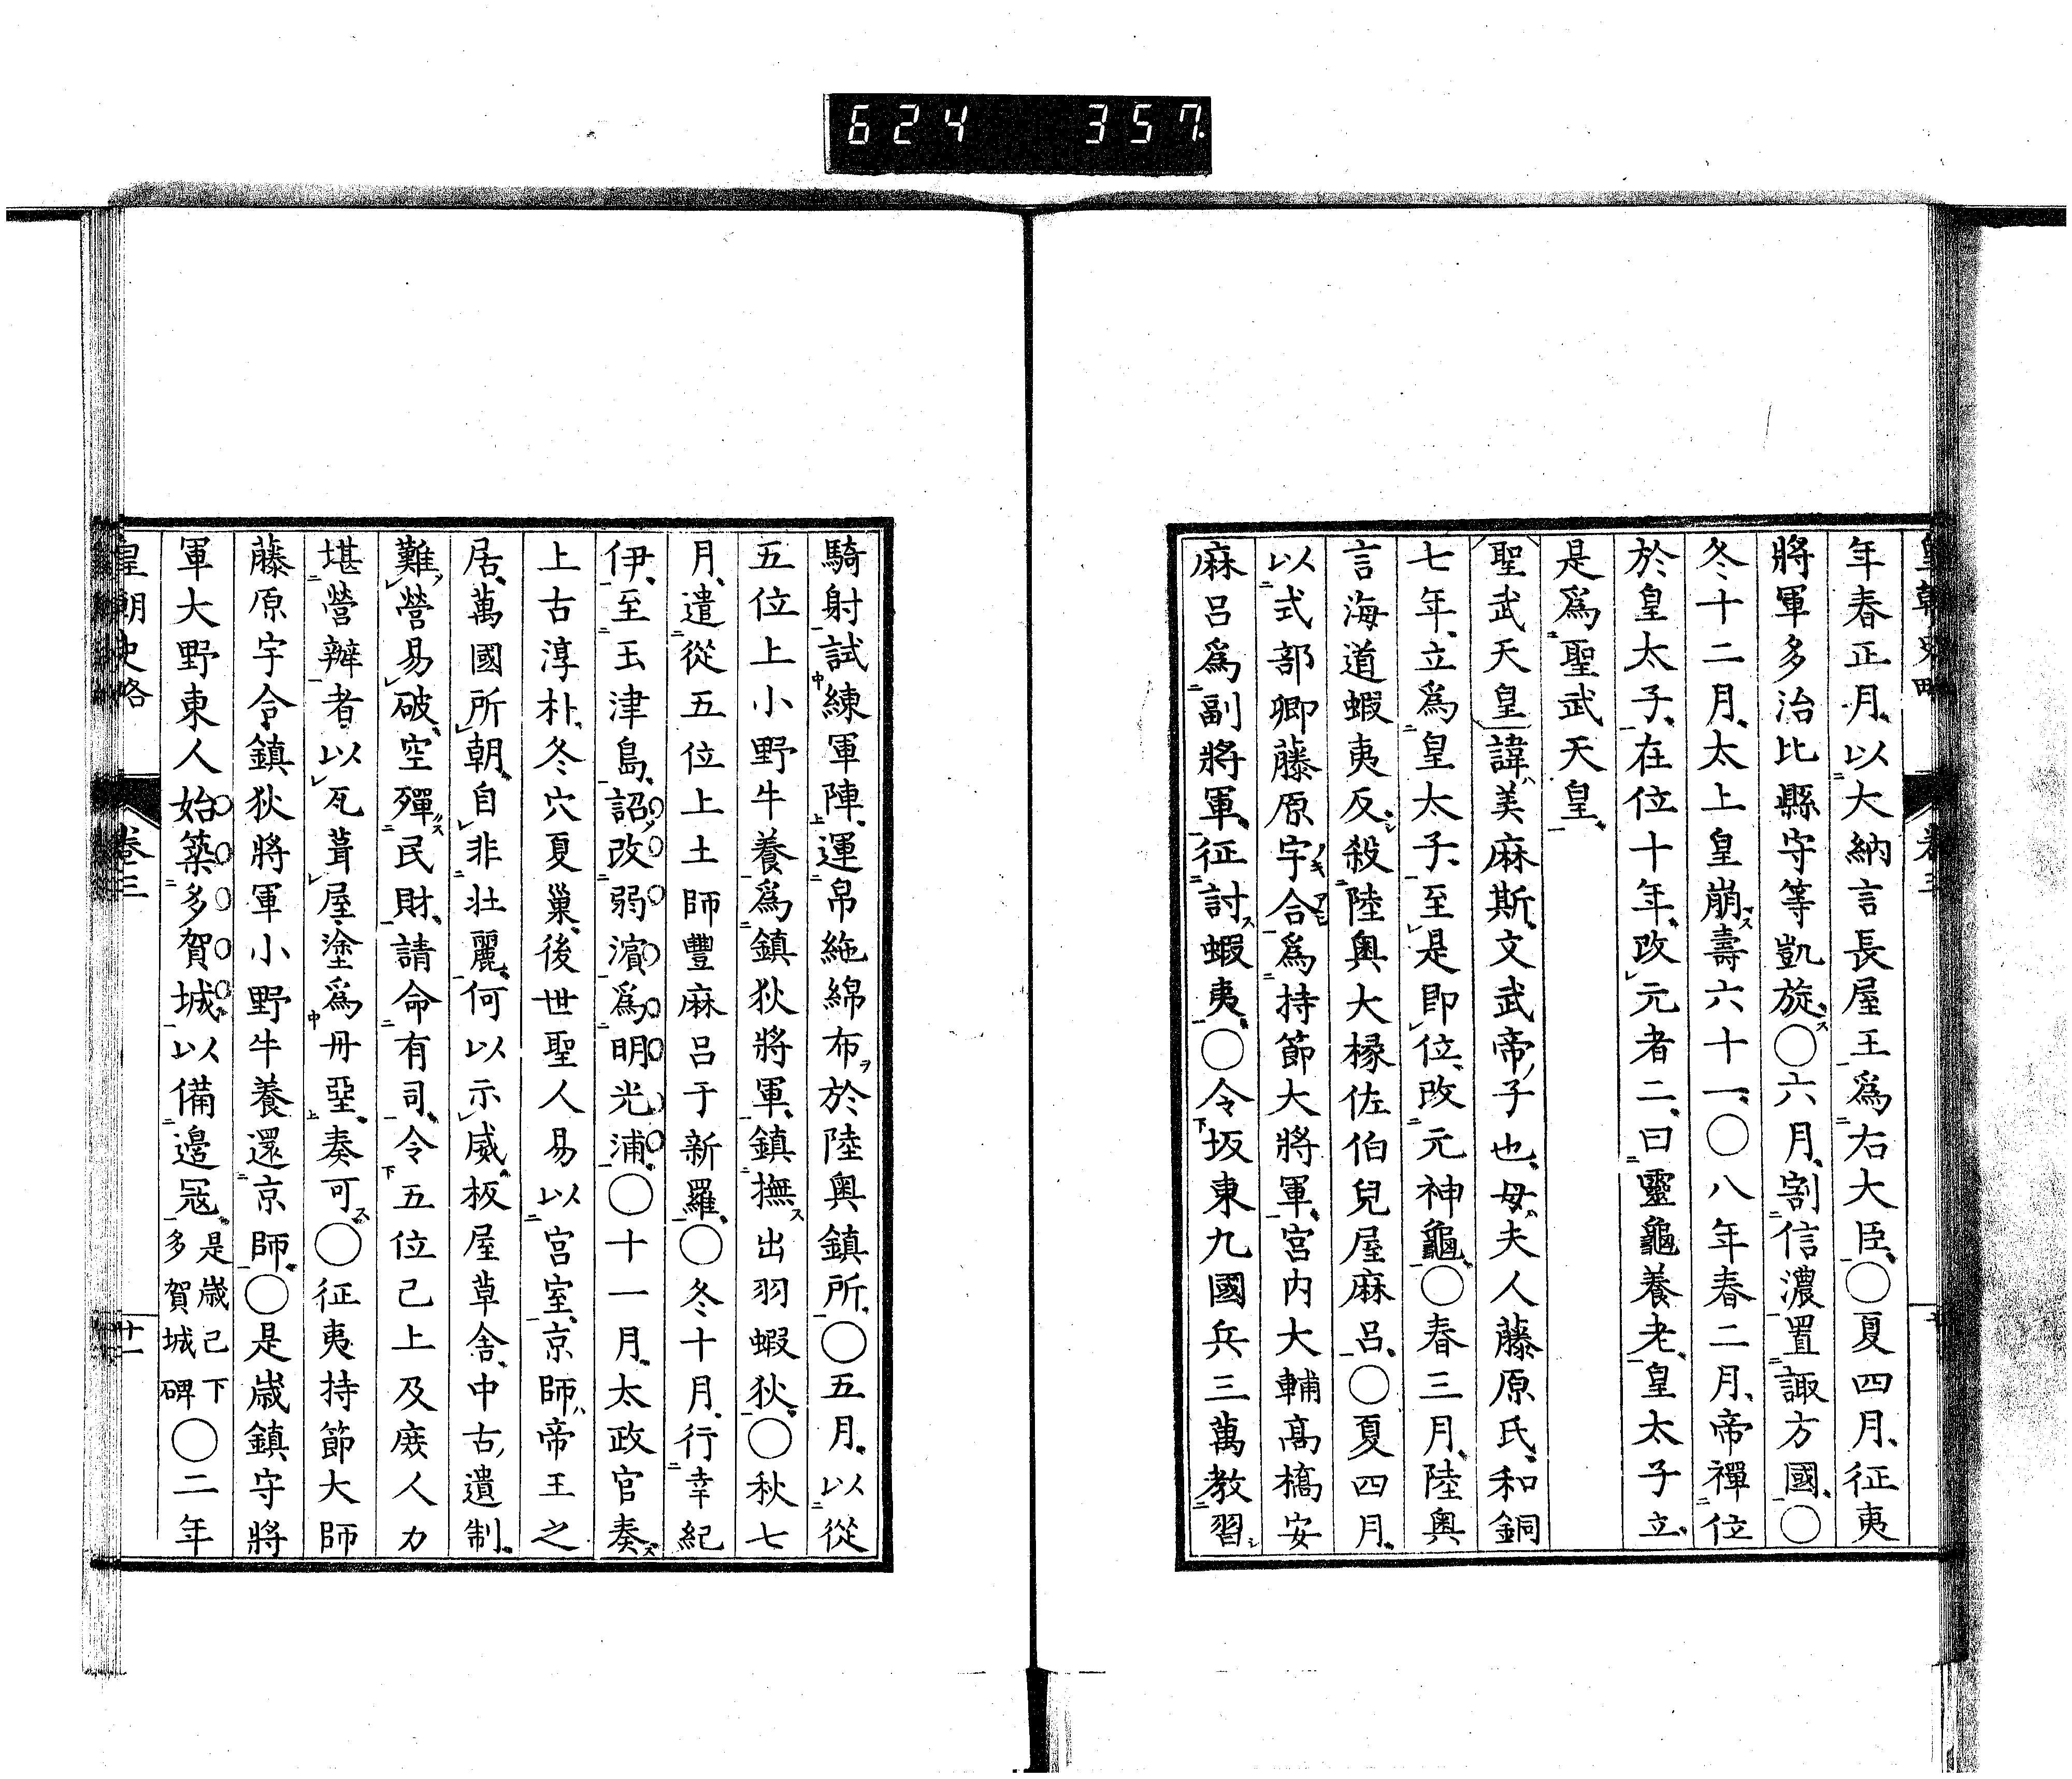 624 357
年春正月、以大納言長屋王爲右大臣、○夏四月、征夷
將軍多治比縣守等凱旋、○六月、割信濃置諏方國、○
冬十二月、太上皇崩、壽六十一、○八年春二月、帝禪位
於皇太子、在位十年、改元者二、曰靈龜養老、皇太子立、
是爲聖武天皇、
聖武天皇諱美麻斯、文武帝子也、母夫人藤原氏、和銅
七年、立爲皇太子、至是即位、改元神龜、○春三月、陸奥
言海道蝦夷反、殺陸奥大椽佐伯兒屋麻呂、○夏四月、
以式部卿藤原宇合爲持節大將軍、宮内大輔高橋安
麻呂爲副將軍、征討蝦夷、○令坂東九國兵三萬教習
騎射試練軍陣、運帛絁綿布於陸奥鎮所、○五月、以從
五位上小野牛養爲鎮狄將軍、鎮撫出羽蝦狄、○秋七
月、遣從五位上土師豐麻呂于新羅、○冬十月、行幸紀
伊、至玉津島、詔改弱濵爲明光浦、○十一月、太政官奏
上古淳朴、冬穴夏巢、後世聖人易以宮室、京師帝王之
居、萬國所朝、自非壮麗、何以示威、板屋草舎、中古遺制、
難營易破、空殫民財、請命有司、令五位已上及庶人力
堪營辦者、以瓦葺屋、塗爲丹堊、奏可、○征夷持節大師
藤原宇合、鎮狄將軍小野牛養還京師、○是歲鎮守將
軍大野東人始築多賀城、以備邊寇、是歲已下多賀城碑○二年
皇朝史略 卷三 十一